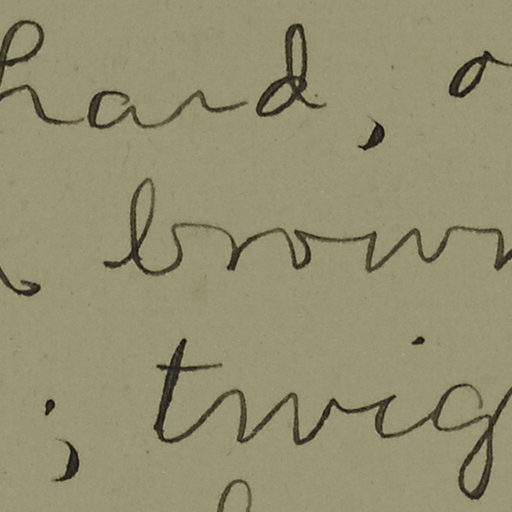 hard, o
brown
; twig